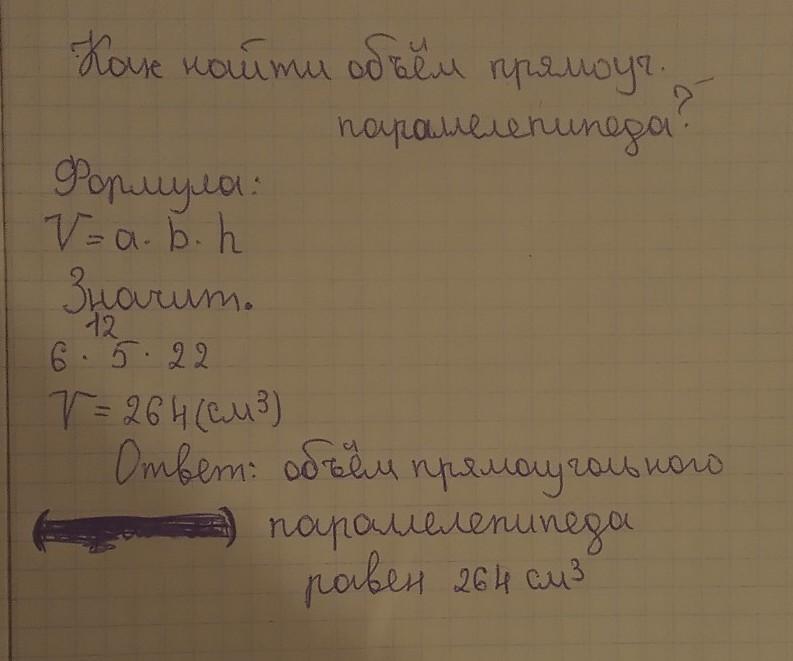 Как найти объём прямоуг.
параллелепипеда?
Формула:
V = a · b · h
Значит.
12
6 · 5 · 22
V = 264 (см³)
Ответ: объём прямоугольного
параллелепипеда
равен 264 см³